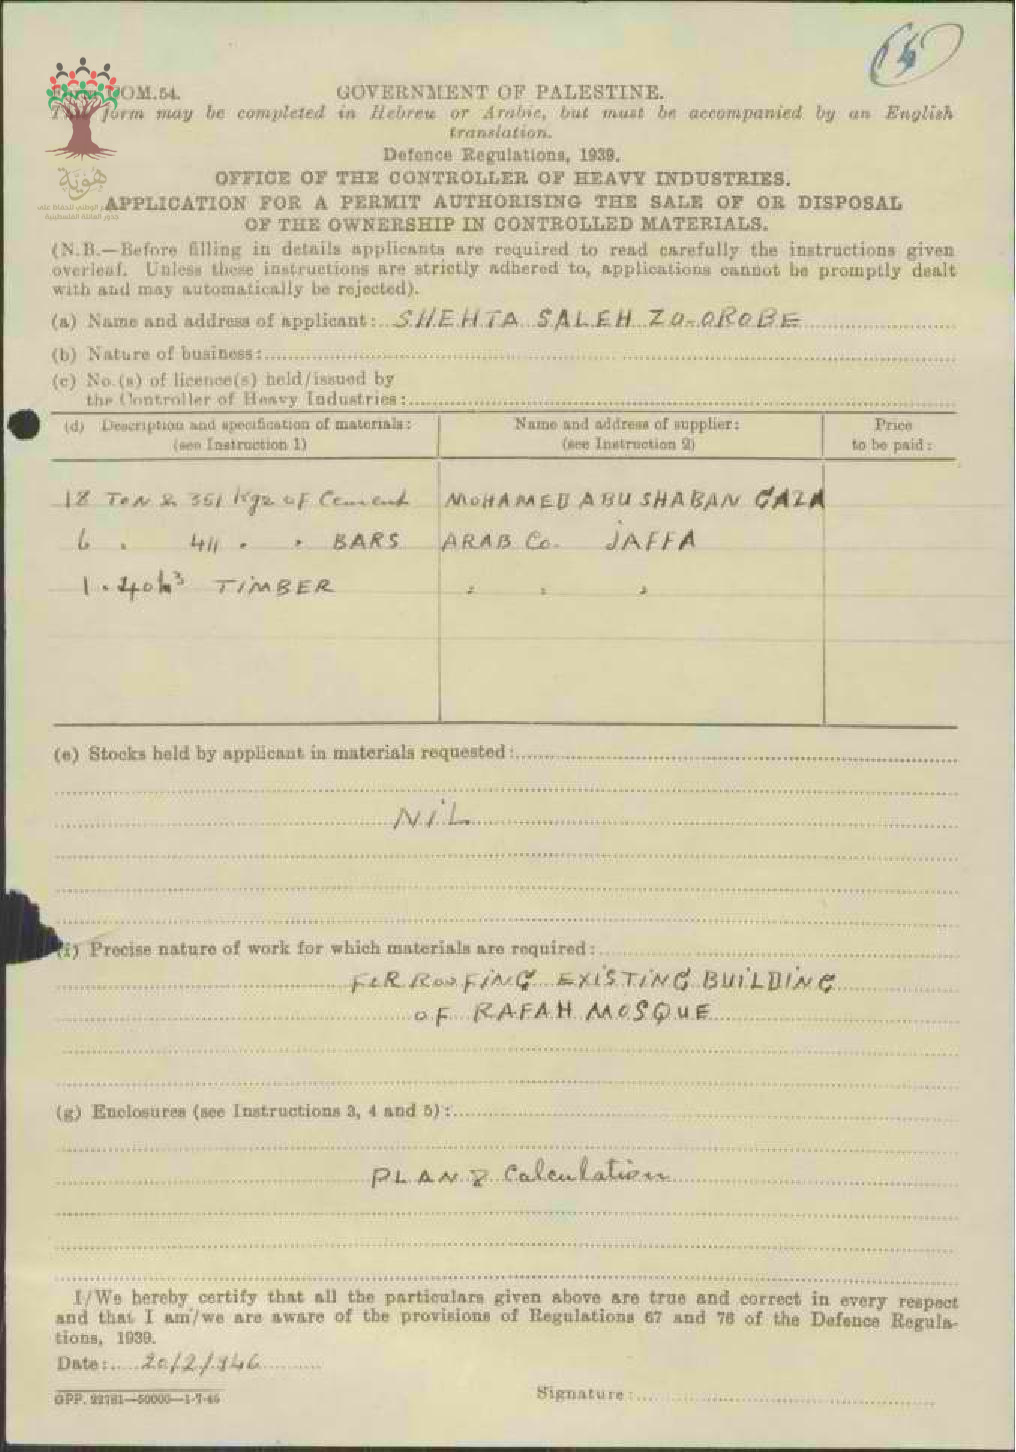 OM.54. GOVERNMENT OF PALESTINE.
form may be completed in Hebrew or Arabic, but must be accompanied by an English
translation.
Defence Regulations, 1939.
هوية
OFFICE OF THE CONTROLLER OF HEAVY INDUSTRIES.
APPLICATION FOR A PERMIT AUTHORISING THE SALE OF OR DISPOSAL
OF THE OWNERSHIP IN CONTROLLED MATERIALS.
(N.B.—Before filling in details applicants are required to read carefully the instructions given
overleaf. Unless these instructions are strictly adhered to, applications cannot be promptly dealt
with and may automatically be rejected).
(a) Name and address of applicant: SHEHTA SALEH ZO-OROBE
(b) Nature of business:
(c) No.(s) of licence(s) held/issued by
the Controller of Heavy Industries:
(d) Description and specification of materials: Name and address of supplier: Price
(see Instruction 1) (see Instruction 2) to be paid:
18 TON & 351 Kgs OF Cement MOHAMED ABU SHABAN GAZA
6 " 411 " " BARS ARAB Co. JAFFA
TIMBER " " "
(e) Stocks held by applicant in materials requested:
NIL
Precise nature of work for which materials are required:
FOR ROOFING EXISTING BUILDING
OF RAFAH MOSQUE
(g) Enclosures (see Instructions 3, 4 and 5):
PLAN & Calculation
I/We hereby certify that all the particulars given above are true and correct in every respect
and that I am/we are aware of the provisions of Regulations 67 and 76 of the Defence Regula-
tions, 1939.
Date: 20/2/946
GPP. 22781—50000—1-7-45 Signature: